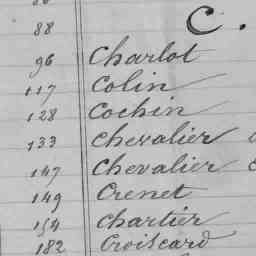 C.
88
96 Charlot
117 Colin
128 Cochin
133 Chevalier
147 Chevalier
149 Crenet
154 Chartier
182 Croiscard